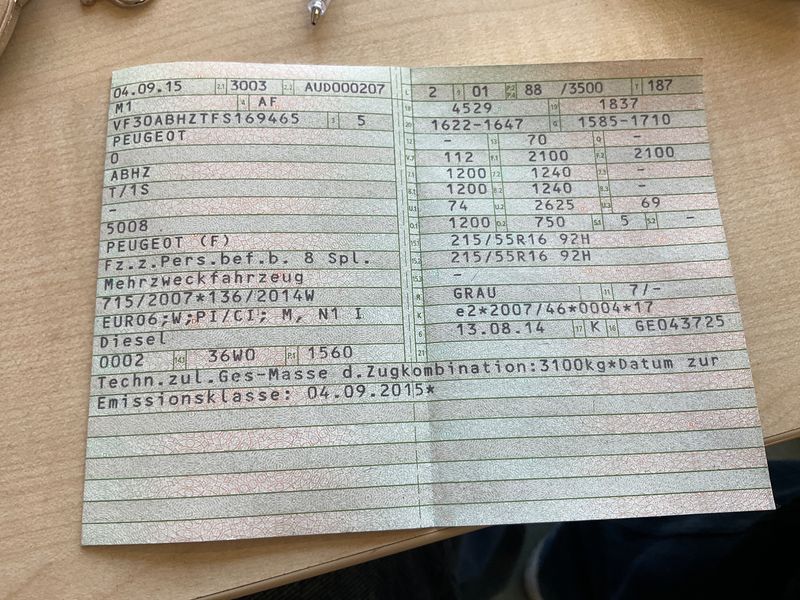 04.09.15 2.1 3003 2.2 AUD000207
M1 4 AF
VF30ABHZTFS169465 3 5
PEUGEOT
0
ABHZ
T/1S
-
5008
PEUGEOT (F)
Fz.z.Pers.bef.b. 8 Spl.
Mehrzweckfahrzeug
715/2007*136/2014W
EURO6;W;PI/CI; M, N1 I
Diesel
0002 14.1 36W0 P.1 1560
L 2 9 01 P.2 P.4 88 /3500 T 187
18 4529 19 1837
20 1622-1647 G 1585-1710
12 - 13 70 Q -
V.7 112 F.1 2100 F.2 2100
7.1 1200 7.2 1240 7.3 -
8.1 1200 8.2 1240 8.3 -
U.1 74 U.2 2625 U.3 69
O.1 1200 O.2 750 S.1 5 S.2 -
15.1 215/55R16 92H
15.2 215/55R16 92H
15.3 -
R GRAU 11 7/-
K e2*2007/46*0004*17
6 13.08.14 17 K 16 GE043725
21
Techn.zul.Ges-Masse d.Zugkombination:3100kg*Datum zur
Emissionsklasse: 04.09.2015*